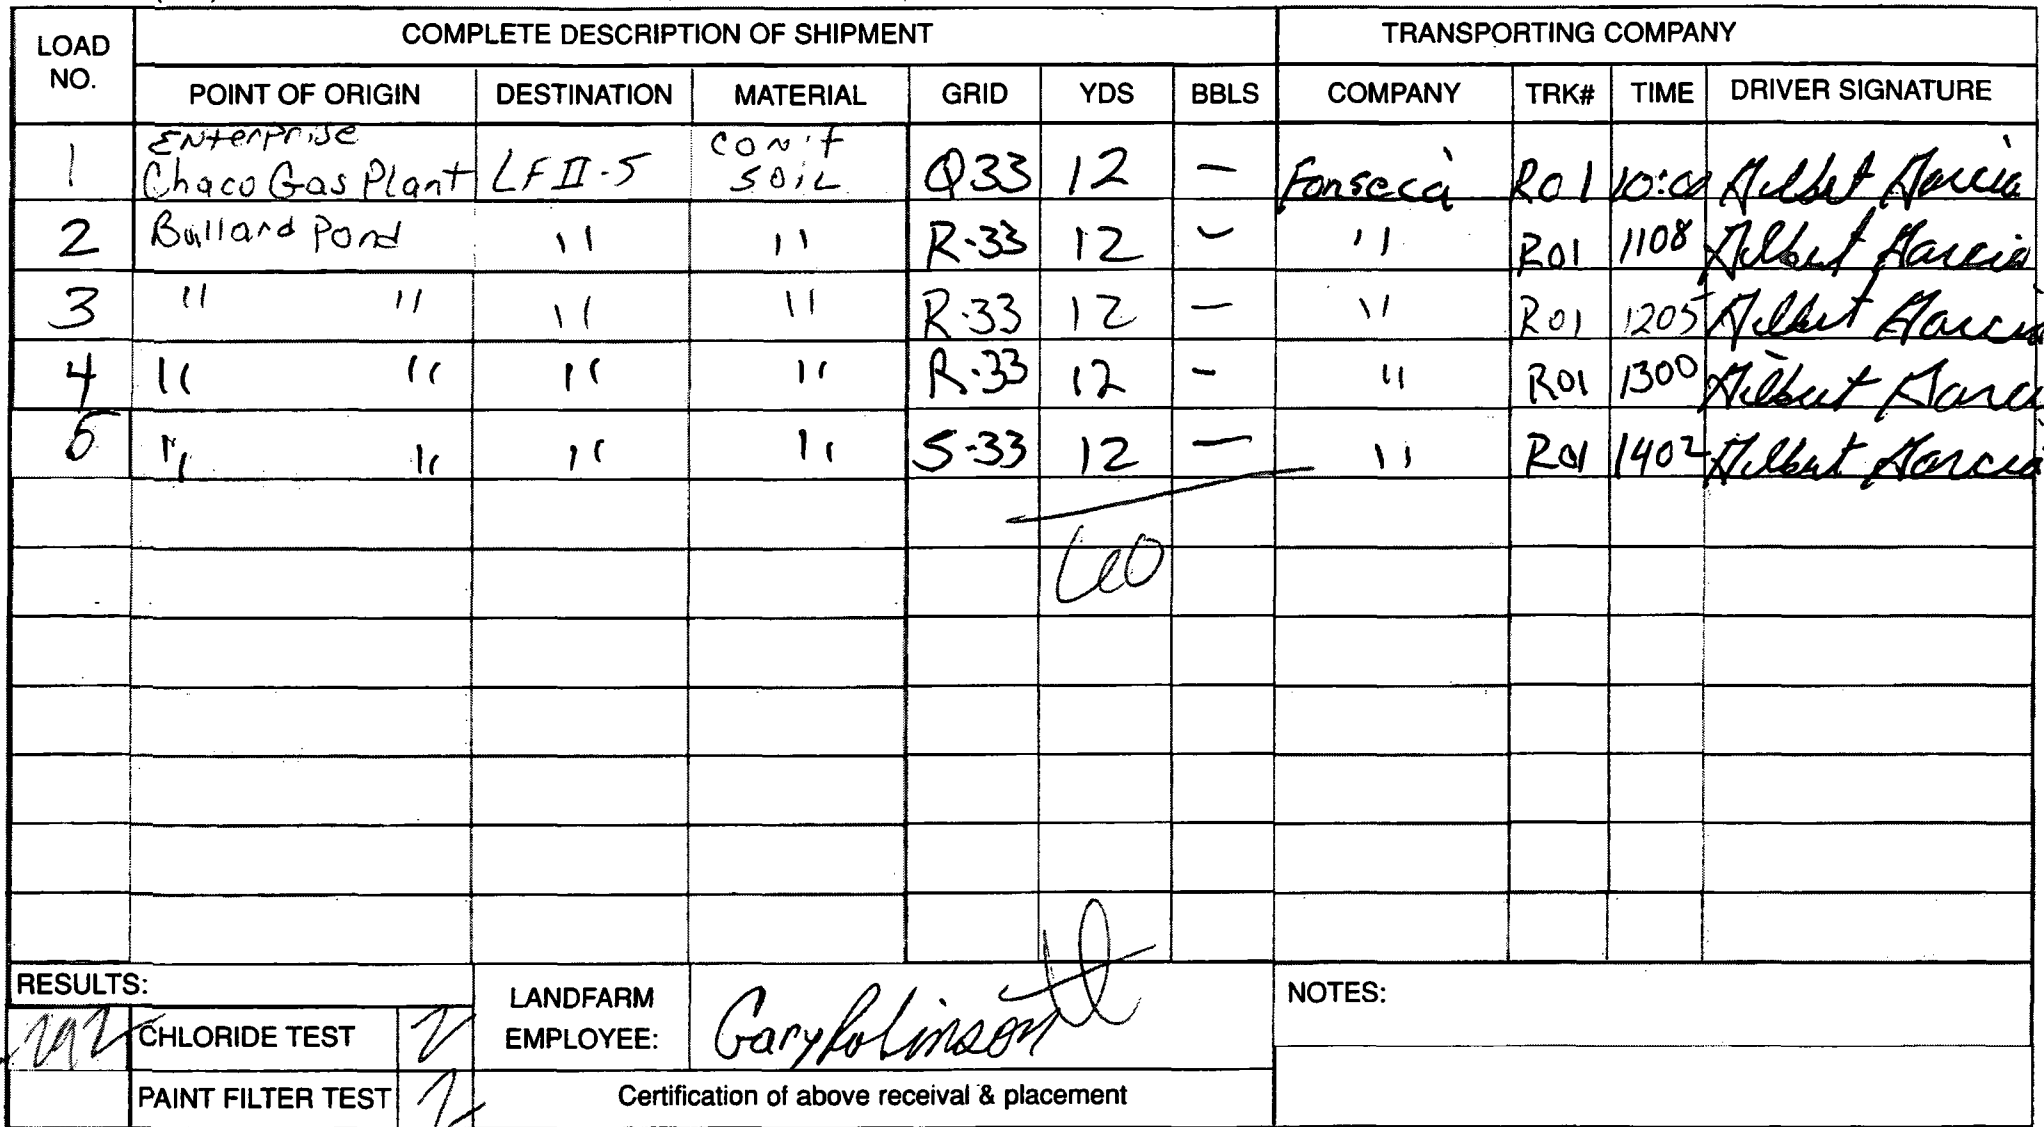 COMPLETE DESCRIPTION OF SHIPMENT TRANSPORTING COMPANY
LOAD NO. POINT OF ORIGIN DESTINATION MATERIAL GRID YDS BBLS COMPANY TRK# TIME DRIVER SIGNATURE
1 Enterprise Chaco Gas Plant LF II-5 con't soil Q33 12 — Fonseca R01 10:00 Gilbert Garcia
2 Ballard Pond " " R-33 12 - " R01 1108 Gilbert Garcia
3 " " " " R-33 12 — " R01 1205 Gilbert Garcia
4 " " " " R-33 12 - " R01 1300 Gilbert Garcia
5 " " " " S-33 12 — " R01 1402 Gilbert Garcia
60
RESULTS:
LANDFARM EMPLOYEE: Gary Robinson
NOTES:
CHLORIDE TEST
PAINT FILTER TEST
Certification of above receival & placement